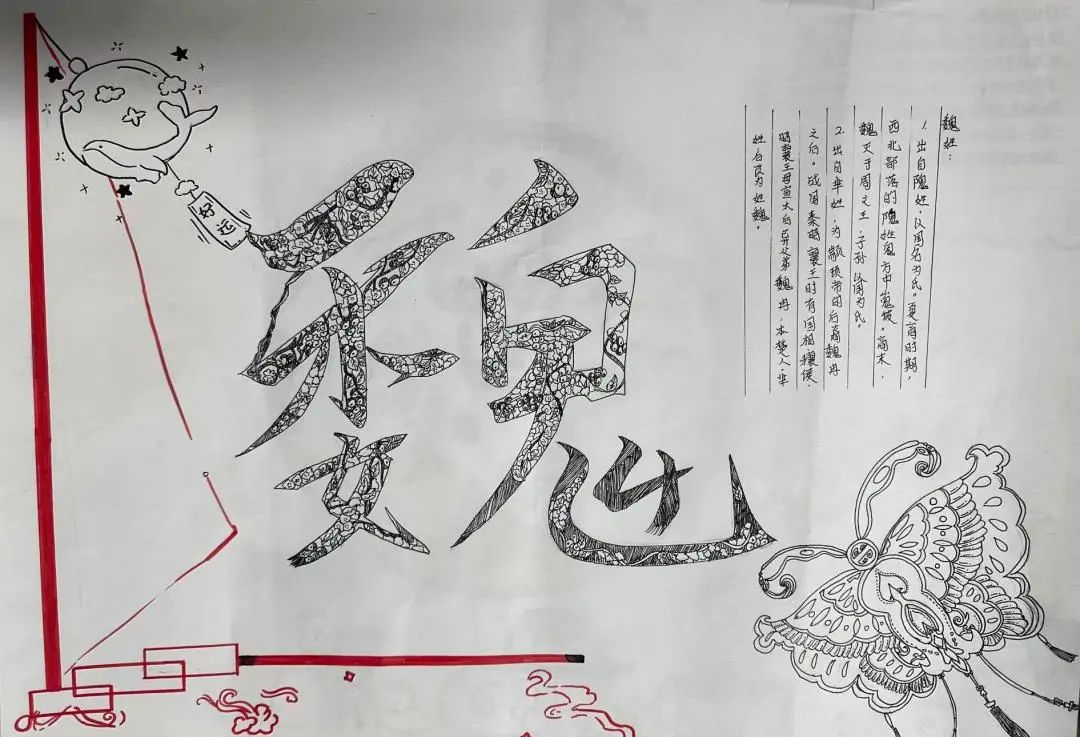 好运
魏
魏姓:
1. 出自隗姓,以国名为氏。夏商时期,
西北部落的隗姓鬼方中嵬坡。商末,
魏灭于周文王,子孙以国为氏。
2. 出自芈姓,为颛顼帝的后裔魏冉
之后。战国秦昭襄王时有国相穰侯,
昭襄王母宣太后异父弟魏冉,本楚人,芈
姓后改为姓魏。